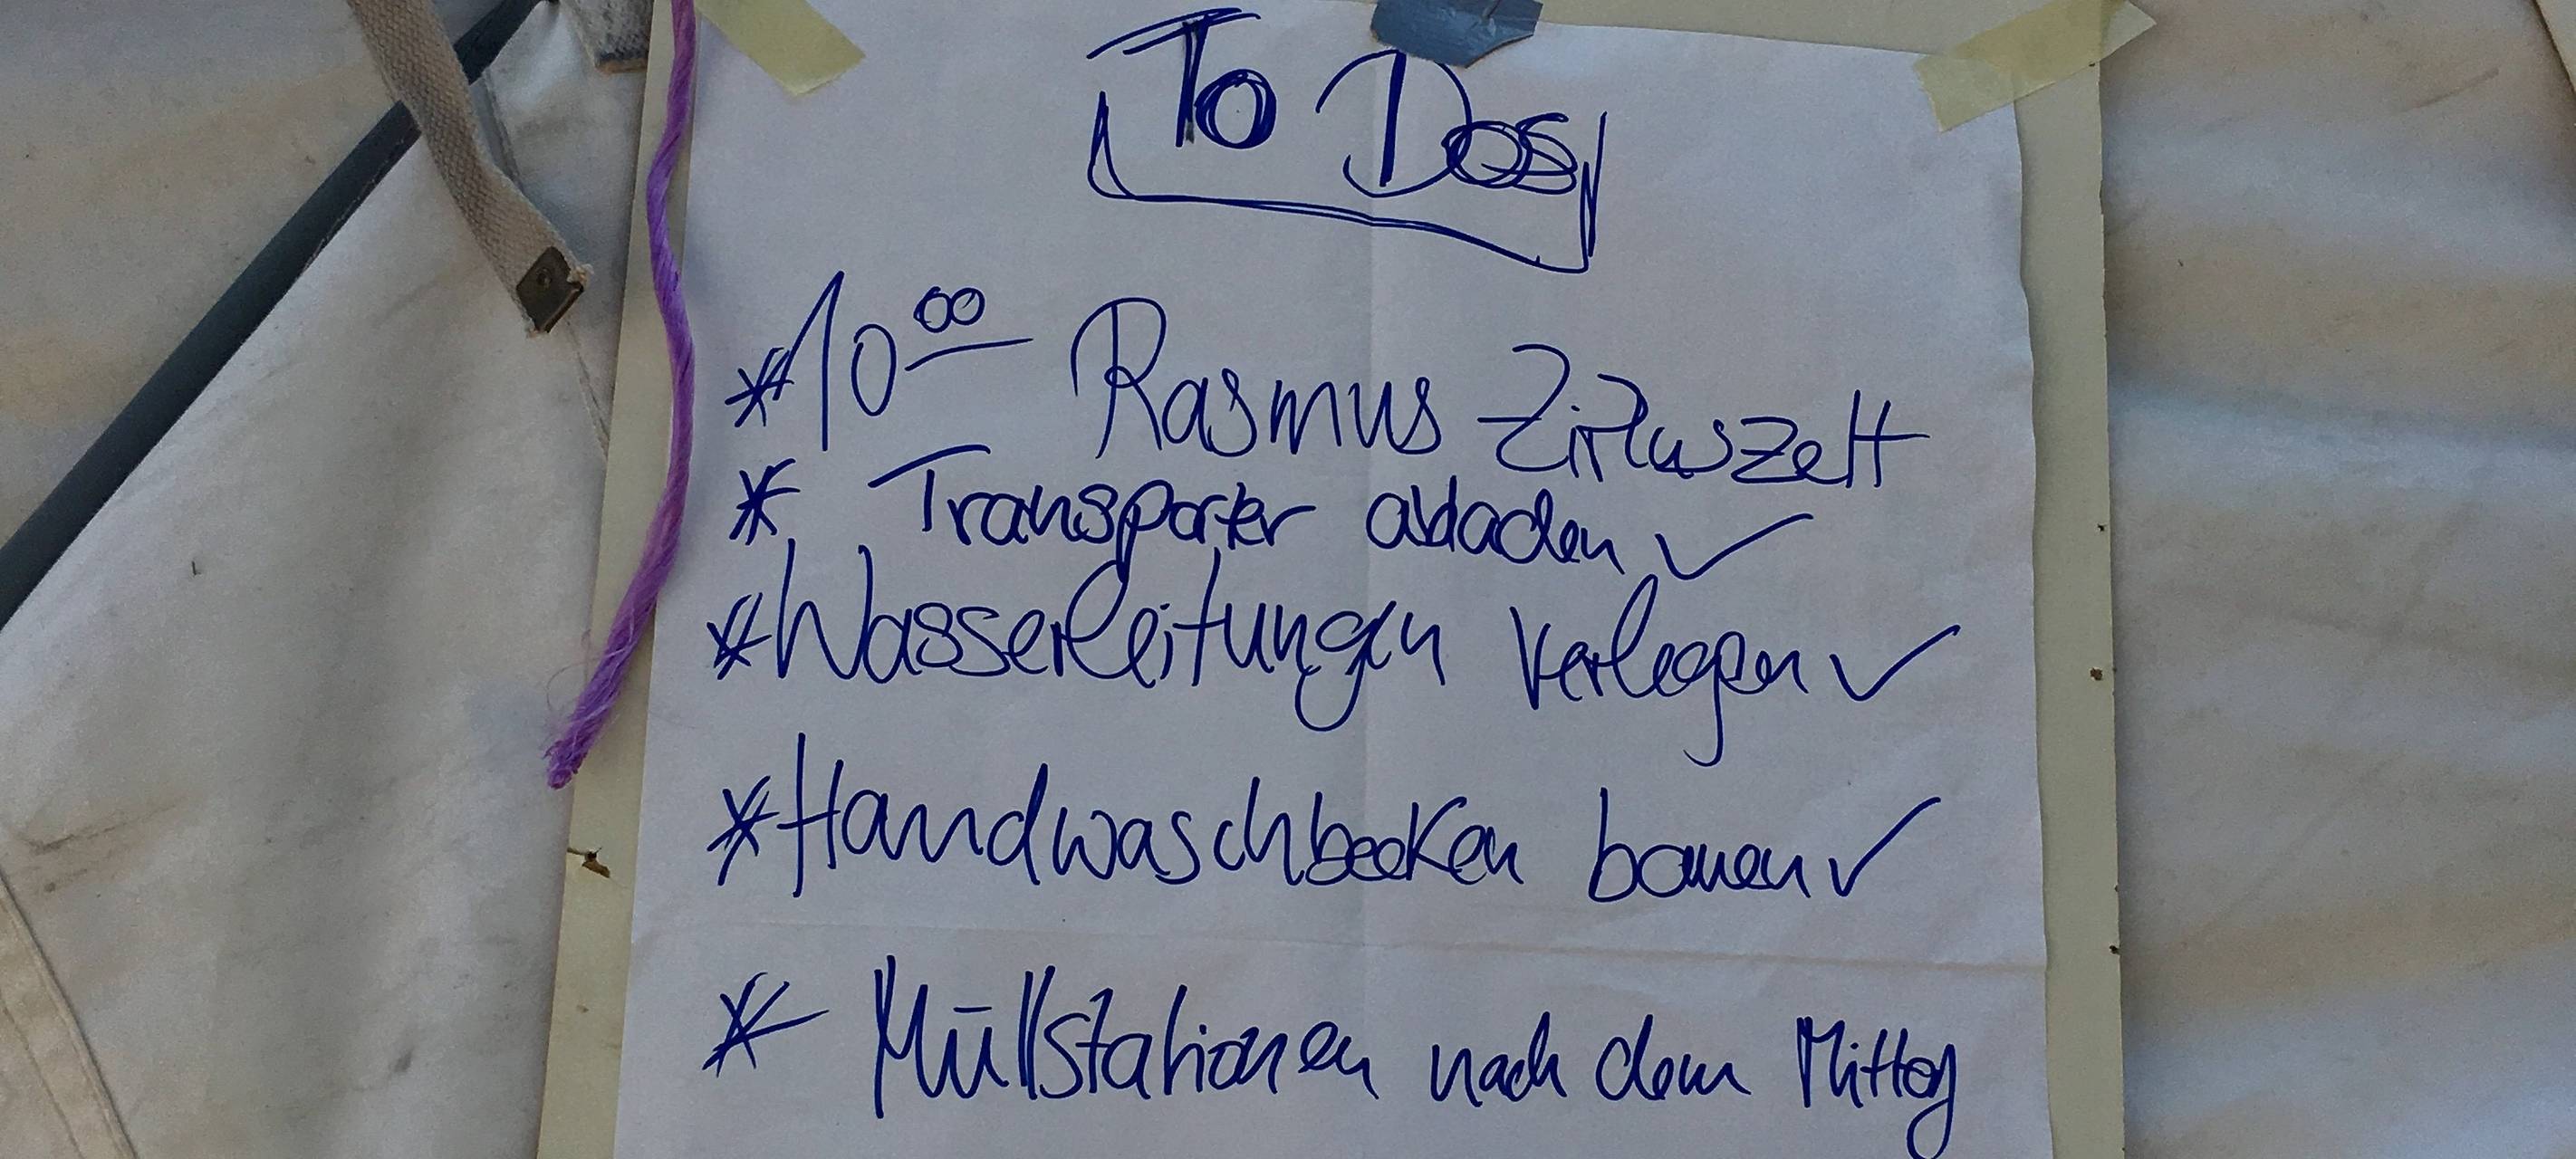 To Dos
* 10 00 Rasmus Zirkuszelt
* Transporter abladen ✓
* Wasserleitungen verlegen ✓
* Handwaschbecken bauen ✓
* Müllstationen nach dem Mittag